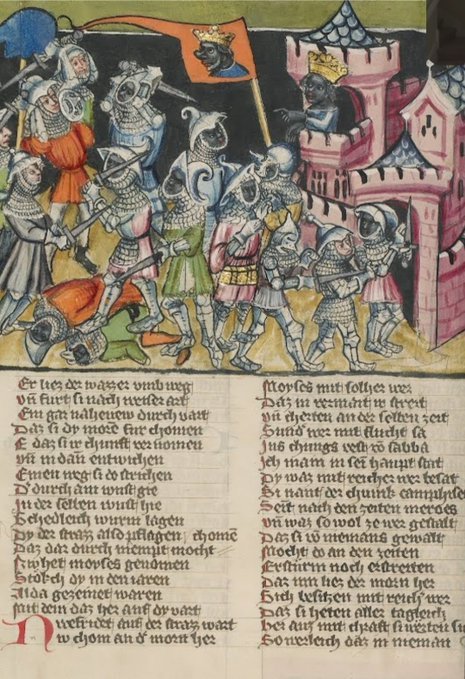 Er liez der wazzer vmb weg
Vñ furt si nach weiser art
Ein gar nahenew durch vart
Daz si dy more fur chomen
E daz si ir chunft vernomen
Vñ in dañ entwichen
Einen weg si do strichen
D' durch ain wust gie
In der selben wust hie
Schedleich wurm lagen
Dy der straz also pflagen
chomē
Daz daz durch niempt mocht
Nv het moyses genomen
Storch dy in den iaren
Alda gezemet waren
Mit dem daz her auf dy vart
N
w chom an d' morn her
Moyses mit solher wer
Daz in vermant w streit
Vñ cherten an der selben zeit
Jns chungs vest vō sabba
Jch main in sein haupt stat
Dy waz mit reicher wer besat
Si nant der chunik camphises
Seint nach den zeiten meroes
Vñ waz so wol ze wer gestalt
Daz si vō niemans gewalt
Mocht do an den zeiten
Ersturm noch erstreiten
Daz inn liez der morn her
Sich besitzen mit reich' wer
Daz si heten aller tagleich
So werleich daz in nieman